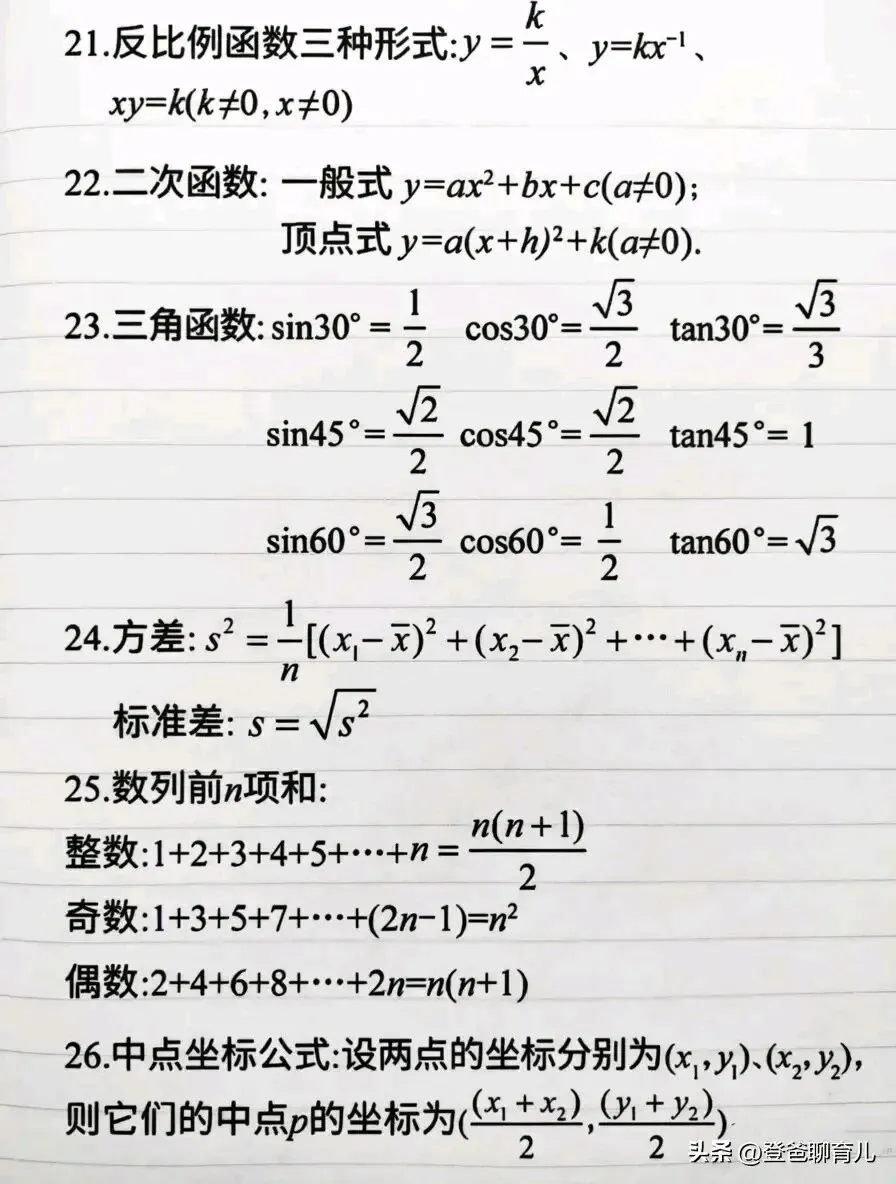 21.反比例函数三种形式:y = k/x 、y=kx⁻¹、
xy=k(k≠0,x≠0)
22.二次函数: 一般式 y=ax²+bx+c(a≠0);
顶点式 y=a(x+h)²+k(a≠0).
23.三角函数: sin30° = 1/2 cos30°= √3/2 tan30°= √3/3
sin45°= √2/2 cos45°= √2/2 tan45°= 1
sin60°= √3/2 cos60°= 1/2 tan60°= √3
24.方差: s² = 1/n[(x₁−x̅)²+(x₂−x̅)²+⋯+(xₙ−x̅)²]
标准差: s = √s²
25.数列前n项和:
整数:1+2+3+4+5+⋯+n = n(n+1)/2
奇数:1+3+5+7+⋯+(2n−1)=n²
偶数:2+4+6+8+⋯+2n=n(n+1)
26.中点坐标公式:设两点的坐标分别为(x₁,y₁)、(x₂,y₂),
则它们的中点p的坐标为((x₁+x₂)/2,(y₁+y₂)/2)
头条 @登爸聊育儿